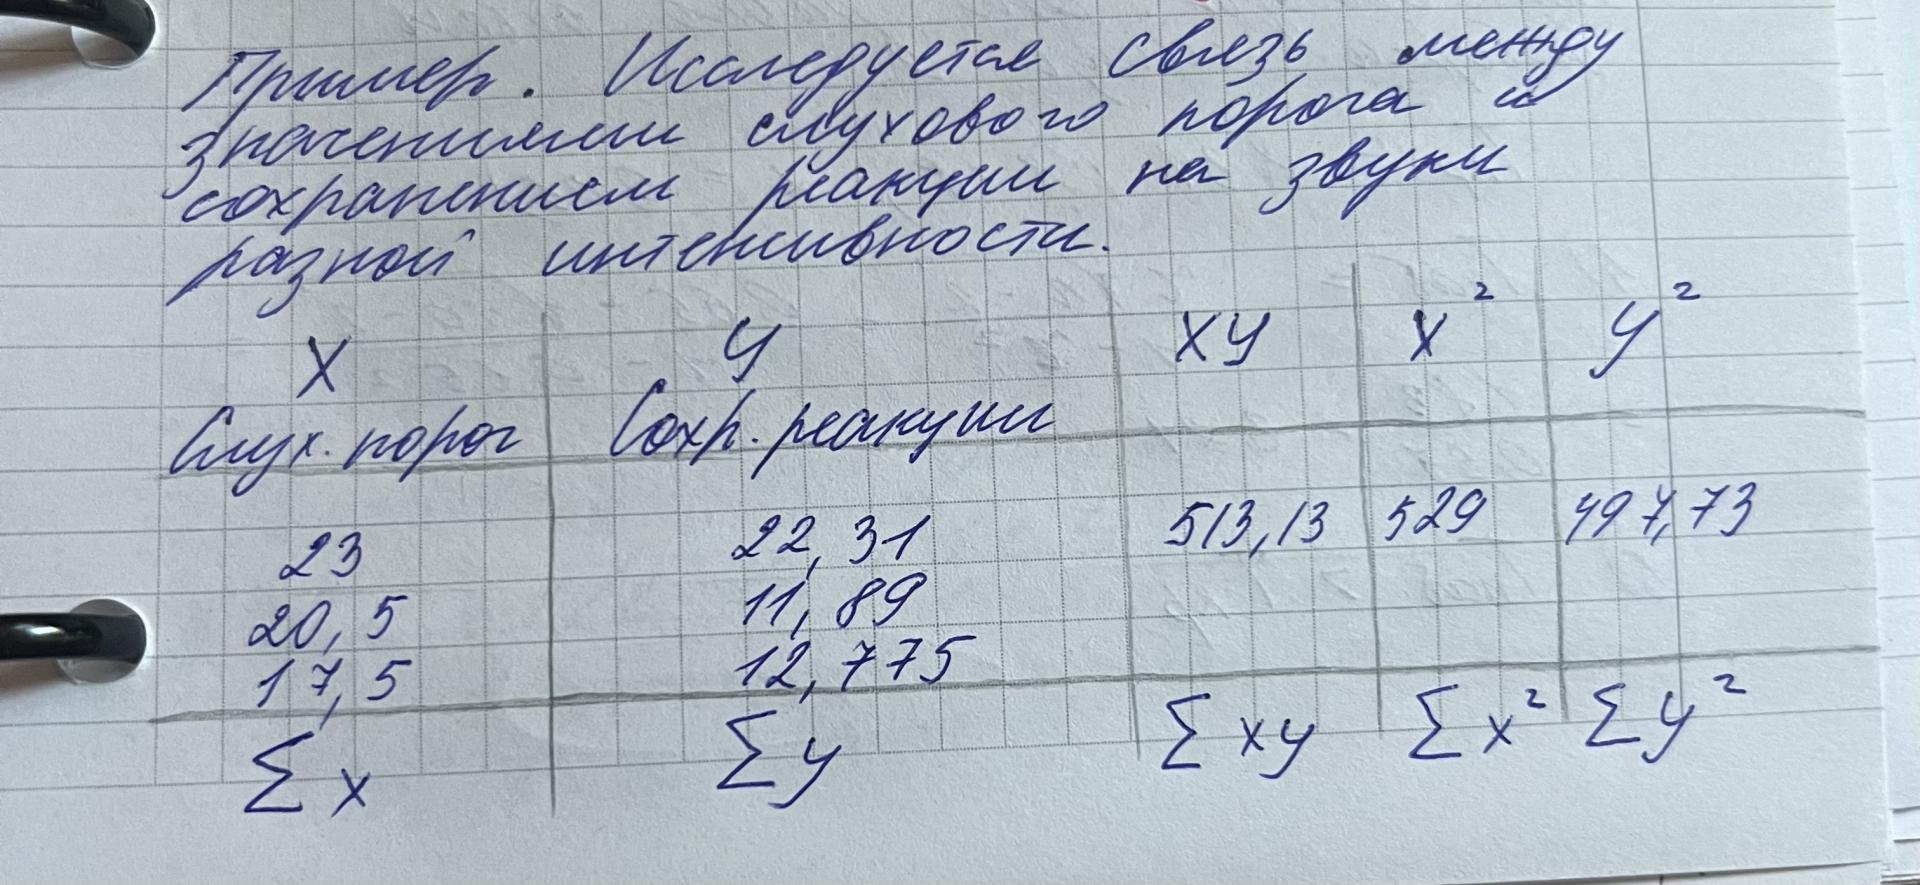 Пример. Исследуется связь между
значениями слухового порога и
сохранением реакции на звуки
разной интенсивности.
X У XУ X² У²
Слух. порог Сохр. реакции
23 22,31 513,13 529 497,73
20,5 11,89
17,5 12,775
Σx Σy Σxy Σx² Σy²